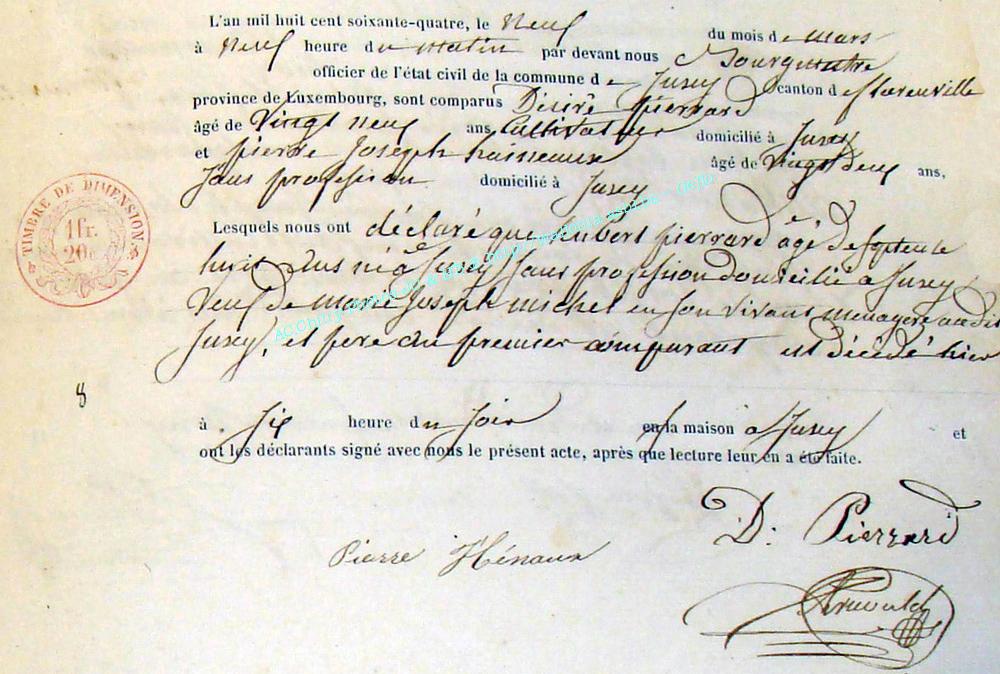 L'an mil huit cent soixante-quatre, le Neuf du mois de mars
à Neuf heure du matin par devant nous Bourgmestre
officier de l'état civil de la commune de Jusey canton de florenville
province de Luxembourg, sont comparus Désiré pierrard
âgé de Vingt neuf ans, Cultivateur domicilié à Jusey
et pierre Joseph âgé de Vingt deux ans,
Sans profession domicilié à Jusey
Lesquels nous ont déclaré que hubert pierrard agé de septente
huit ans né à Jusey Sans profession domicilié à Jusey
Veuf de marie Joseph michel en son vivant menagere audit
Jusey, et pere du premier comparant est décédé hier
TIMBRE DE DIMENSION
1 fr.
20 c
8
à Six heure du Soir en la maison à Jusey et
ont les déclarants signé avec nous le présent acte, après que lecture leur en a été faite.
D. Pierrard
Pierre Hénaux